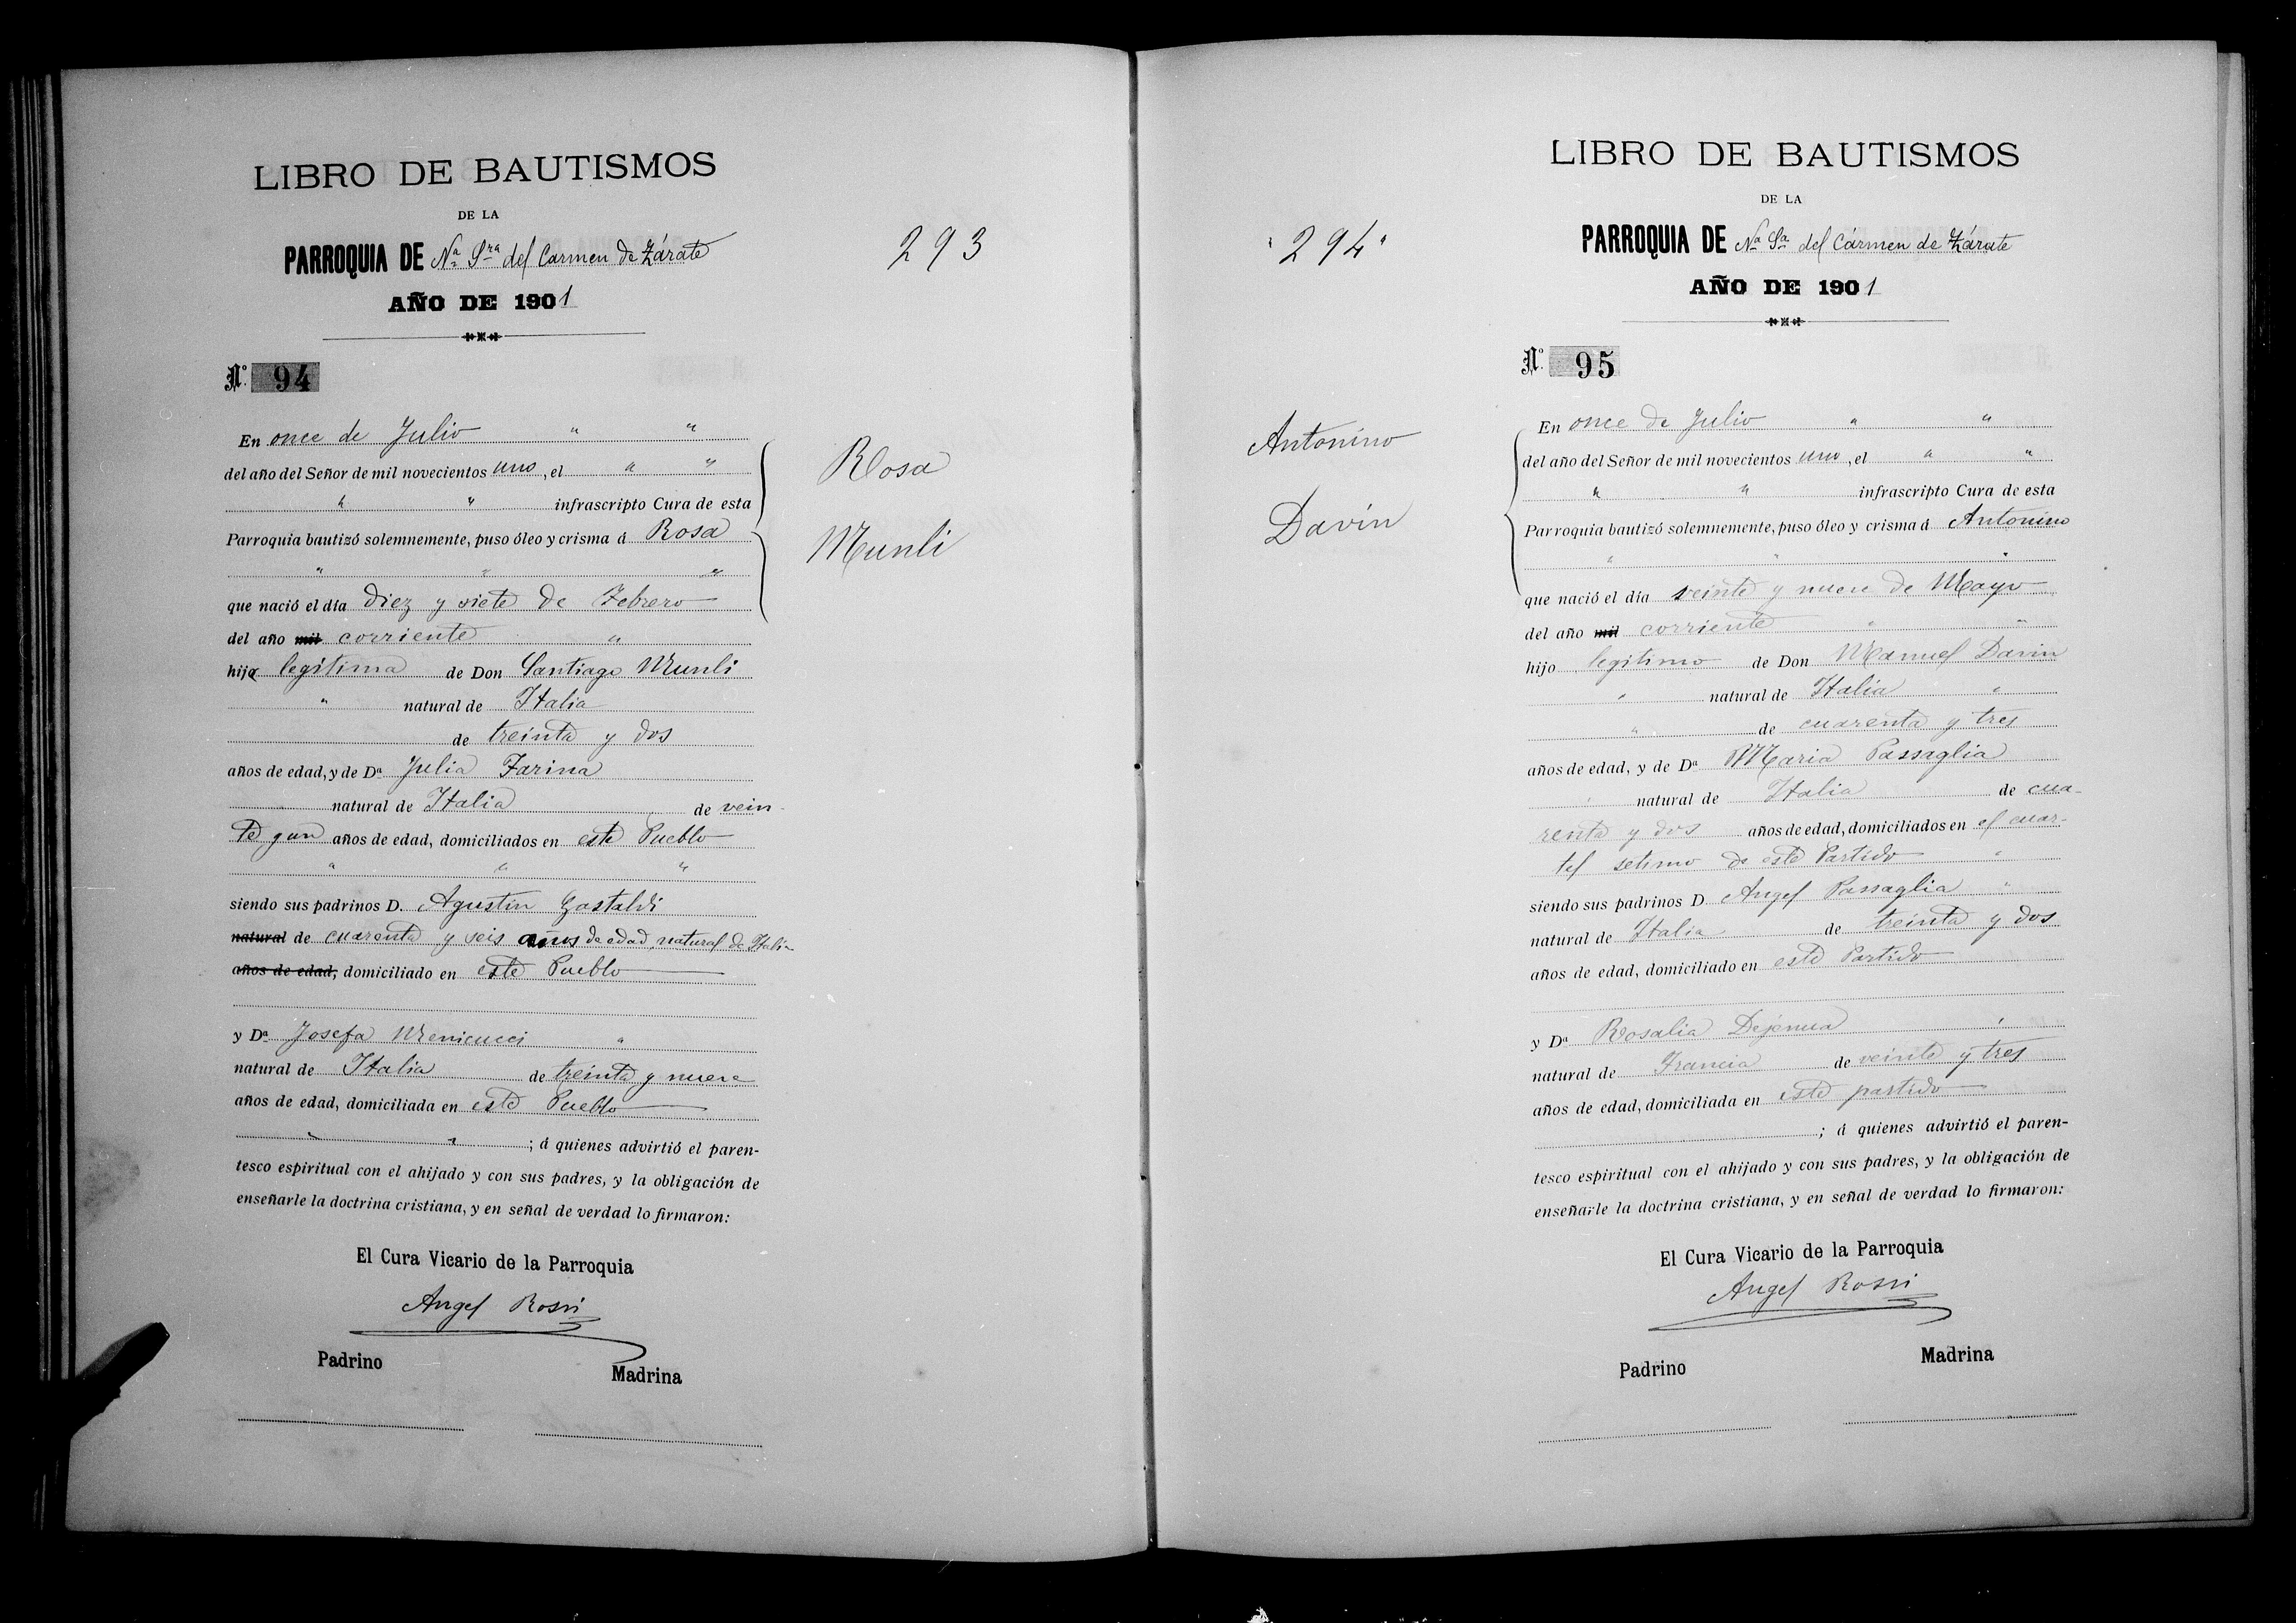 LIBRO DE BAUTISMOS
DE LA
PARROQUIA DE Nª Srª del Carmen de Zárate
AÑO DE 1901
293
Nº 94
En once de Julio " "
del año del Señor de mil novecientos uno, el " "
" " infrascripto Cura de esta
Parroquia bautizó solemnemente, puso óleo y crisma á Rosa
" " "
que nació el día diez y siete de Febrero
del año mil corriente "
hija legitima de Don Santiago Munli
" natural de Italia
de treinta y dos
años de edad, y de Dª Julia Farina
natural de Italia de vein-
te y un años de edad, domiciliados en este Pueblo
" " "
siendo sus padrinos D. Agustin Gastaldi
natural de cuarenta y seis años de edad, natural de Italia
años de edad, domiciliado en este Pueblo
y Dª Josefa Menicucci "
natural de Italia de treinta y nueve
años de edad, domiciliada en este Pueblo
" " ; á quienes advirtió el paren-
tesco espiritual con el ahijado y con sus padres, y la obligación de
enseñarle la doctrina cristiana, y en señal de verdad lo firmaron:
El Cura Vicario de la Parroquia
Angel Rossi
Padrino
Madrina
Rosa
Munli
LIBRO DE BAUTISMOS
DE LA
PARROQUIA DE Nª Sª del Cármen de Zárate
AÑO DE 1901
"294"
Nº 95
Antonino
Davin
En once de Julio " "
del año del Señor de mil novecientos uno, el " "
" " infrascripto Cura de esta
Parroquia bautizó solemnemente, puso óleo y crisma á Antonino
" " "
que nació el día veinte y nueve de Mayo
del año mil corriente " "
hijo legitimo de Don Manuel Davin
" natural de Italia "
" de cuarenta y tres
años de edad, y de Dª Maria Passaglia
" natural de Italia de cua-
renta y dos años de edad, domiciliados en el cuar-
tel setimo de este Partido "
siendo sus padrinos D. Angel Passaglia "
natural de Italia de treinta y dos
años de edad, domiciliado en este Partido
y Dª Rosalia "
natural de Francia de veinte y tres
años de edad, domiciliada en este partido
; á quienes advirtió el paren-
tesco espiritual con el ahijado y con sus padres, y la obligación de
enseñarle la doctrina cristiana, y en señal de verdad lo firmaron:
El Cura Vicario de la Parroquia
Angel Rossi
Padrino
Madrina